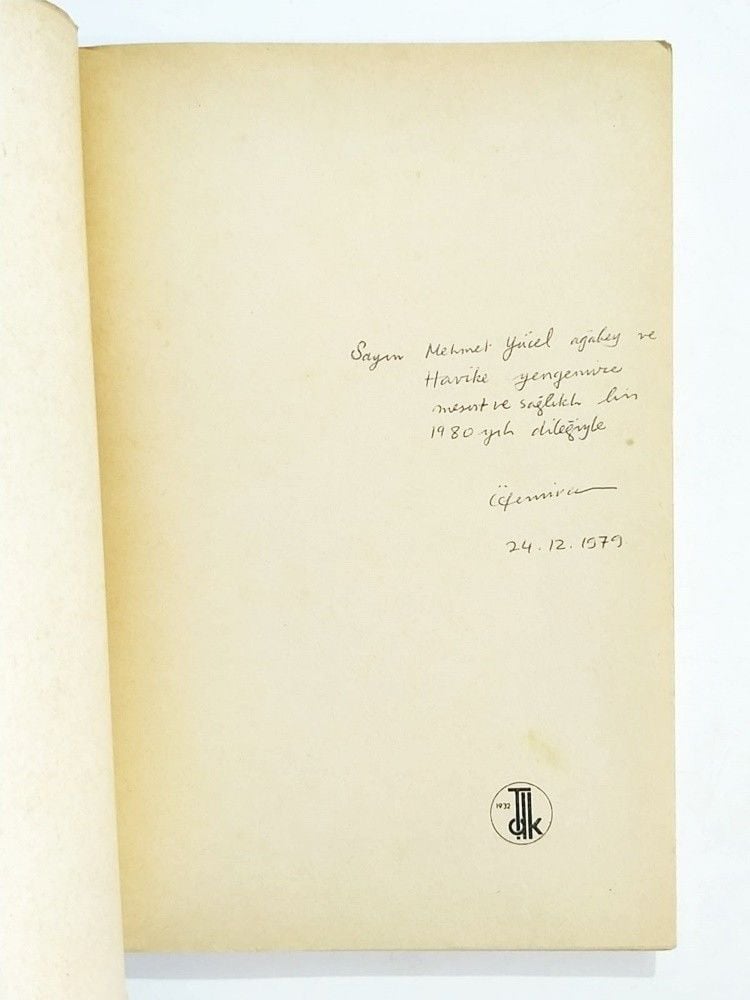 Sayın Mehmet Yücel ağabey ve
Havike yengemize
mesut ve sağlıklı bir
1980 yılı dileğiyle
24.12.1979
1932
TDK